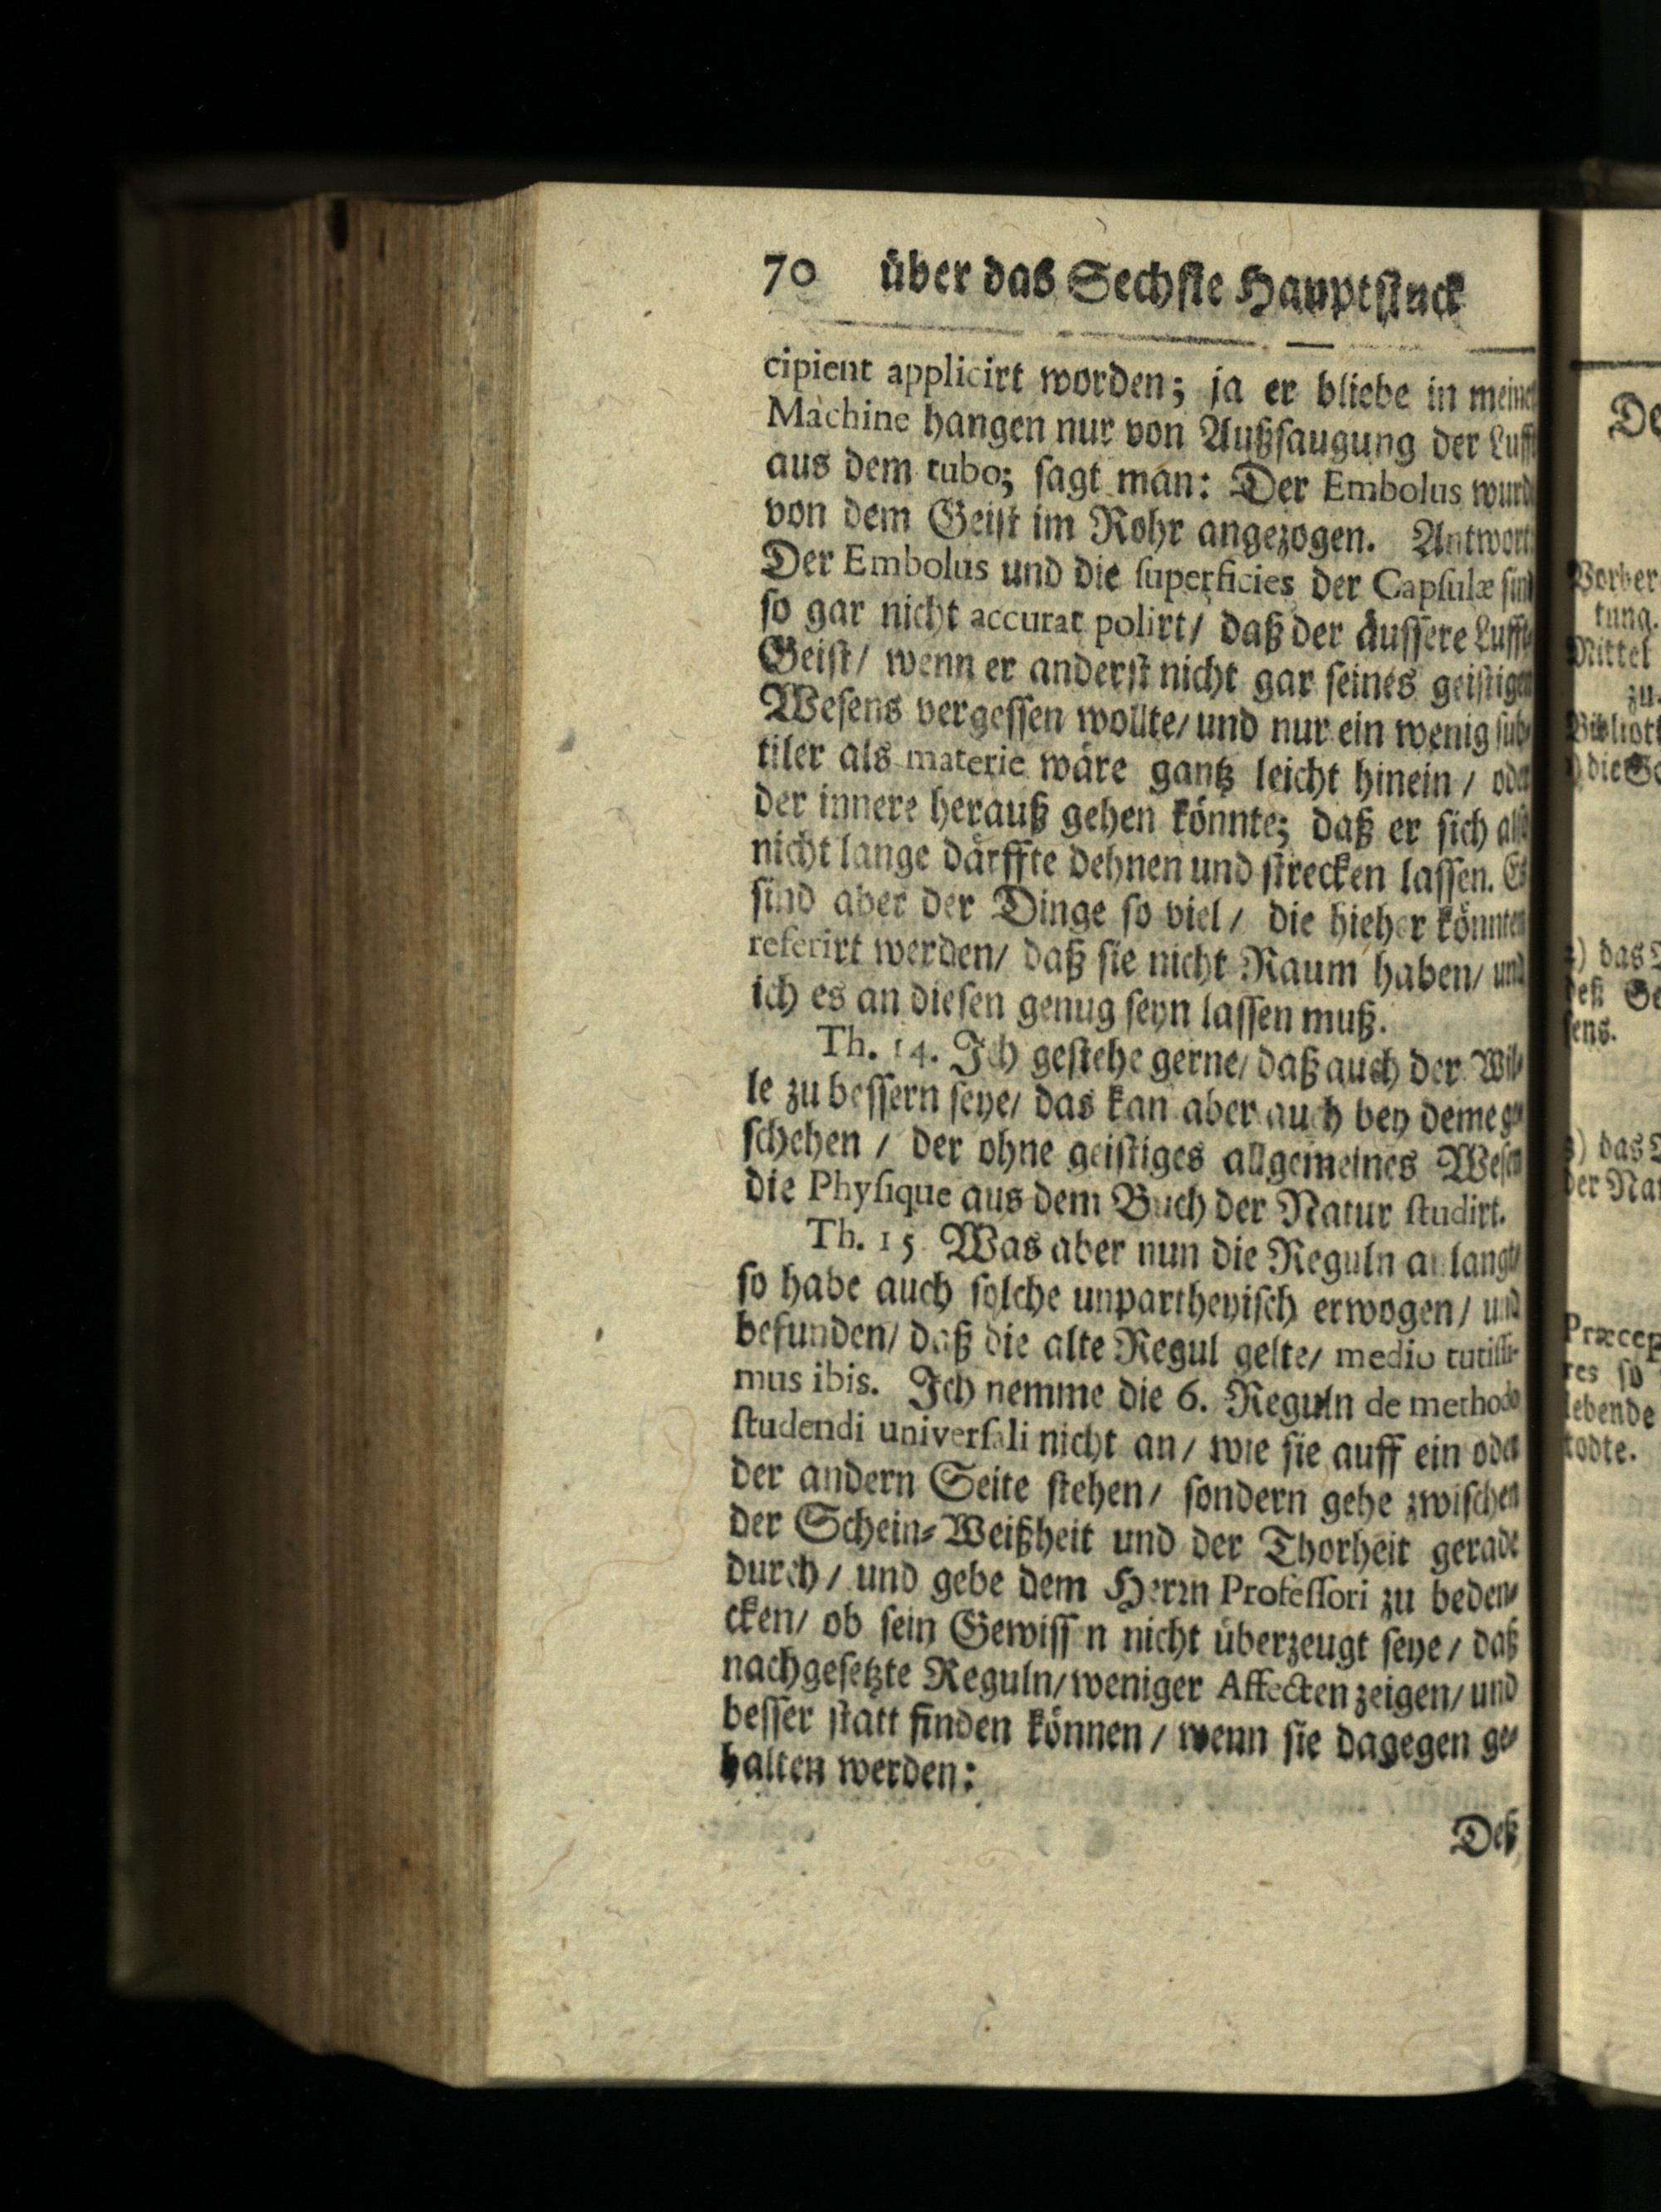 70 über das Sechste Hauptstuck
cipient applicirt worden; ja er bliebe in meiner
Machine hangen nur von Außsaugung der Lufft
aus dem tubo; sagt man: Der Embolus wurde
von dem Geist im Rohr angezogen. Antwort:
Der Embolus und die superficies der Capsulæ sind
so gar nicht accurat polirt/ daß der äussere Lufft-
Geist/ wenn er anderst nicht gar seines geistigen
Wesens vergessen wollte/ und nur ein wenig sub-
tiler als materie wäre gantz leicht hinein / oder
der innere herauß gehen könnte; daß er sich also
nicht lange därffte dehnen und strecken lassen. Es
sind aber der Dinge so viel / die hieher könnten
referirt werden/ daß sie nicht Raum haben/ und
ich es an diesen genug seyn lassen muß.
Th. 14. Ich gestehe gerne/ daß auch der Wil-
le zu bessern seye/ das kan aber auch bey deme ge-
schehen / der ohne geistiges allgemeines Wesen
die Physique aus dem Buch der Natur studirt.
Th. 15 Was aber nun die Reguln anlangt/
so habe auch solche unpartheyisch erwogen / und
befunden/ daß die alte Regul gelte/ medio tutissi-
mus ibis. Ich nemme die 6. Reguln de methodo
studendi universali nicht an / wie sie auff ein oder
der andern Seite stehen / sondern gehe zwischen
der Schein-Weißheit und der Thorheit gerade
durch / und gebe dem Herrn Professori zu beden-
cken/ ob sein Gewissen nicht überzeugt seye / daß
nachgesetzte Reguln/ weniger Affecten zeigen/ und
besser statt finden können / wenn sie dagegen ge-
halten werden:
Deß
De
Vorber
tung.
Mittel
zu.
Biblioth
die Sc
das
Se
sens.
das
der Na
Præcep
res so
lebende
todte.